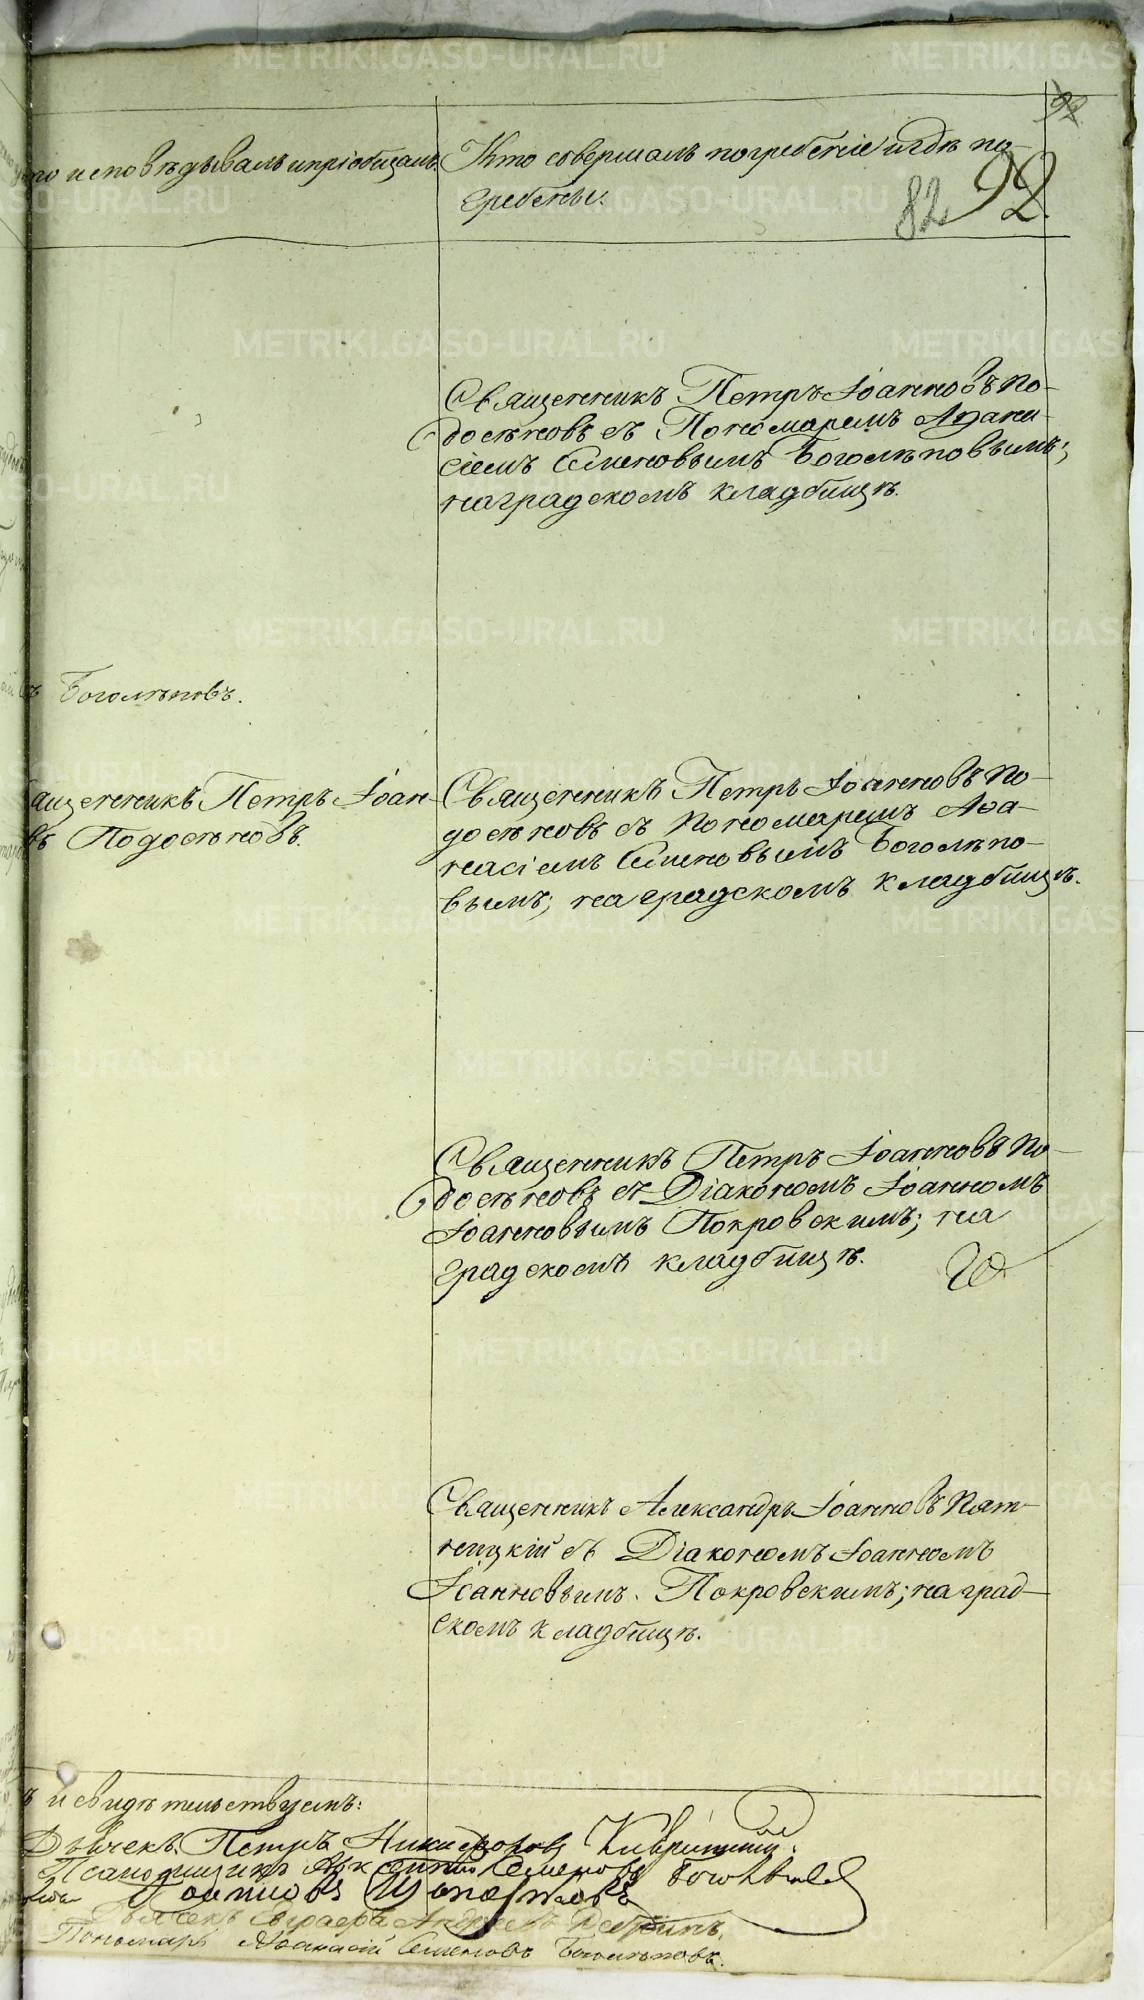 METRIKI.GASO-URAL.RU
92
исповѣдывалъ и пріобщалъ.
Кто совершалъ погребеніе и гдѣ по-
гребены.
82 92.
Священникъ Петръ Іоанновъ По-
досѣновъ съ Пономаремъ Аѳана-
сіемъ Семеновымъ Боголѣповымъ;
на градскомъ кладбищѣ.
ъ Боголѣповъ.
ященникъ Петръ Іоан-
въ Подосѣновъ.
Священникъ Петръ Іоанновъ По-
досѣновъ съ Пономаремъ Аѳа-
насіемъ Семеновымъ Боголѣпо-
вымъ; на градскомъ кладбищѣ.
Священникъ Петръ Іоанновъ По-
досѣновъ съ Діакономъ Іоанномъ
Іоанновымъ Покровскимъ; на
градскомъ кладбищѣ.
Священникъ Александръ Іоанновъ Пят-
ницкій съ Діакономъ Іоанномъ
Іоанновымъ Покровскимъ; на град-
скомъ кладбищѣ.
ъ и свидѣтельствуемъ:
Дьячекъ Петръ Никифоровъ
Псаломщикъ Семеновъ
Дьячекъ Андреевъ
Пономарь Аѳанасій Семеновъ Боголѣповъ.